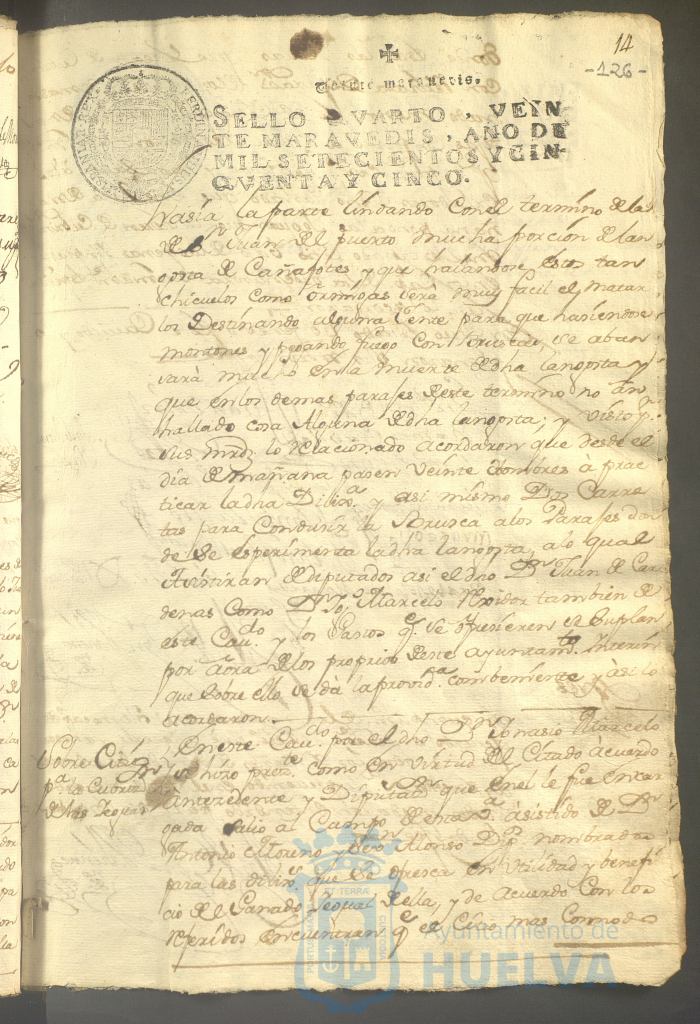 14
-126-
Veinte maravedis.
SELLO QVARTO, VEIN
TE MARAVEDIS, AÑO DE
MIL SETECIENTOS Y CIN
QVENTA Y CINCO.
hasia la parte lindando con el termino de la
de Sn Juan del puerto mucha porcion de lan
gosta de Cañafotes y que halandose estos tan
chicuelos como ormigas será muy facil el matar
los Destinando alguna Gente para que haciendose
montones y pegando fuego con brusca, se aban
sará mucho en la muerte de dha langosta y
que en los demas parajes deste termino no an
hallado cosa Alguna de dha langosta; y visto pr
sus mrds lo relacionado acordaron que desde el
dia de mañana pasen veinte ombres à prac
ticar la dha Dilixa y asi mismo Dos Carre
tas para Condusir la Brusca a los Parajes don
de se esperimenta la dha langosta, a lo qual
Asistiran de diputados asi el dho Dn Juan de Car
denas como Dn Jo Marcelo Rexidor tambien de
este Caudo y los Gastos qe se ofresieren se suplan
por aora de los proprios deste ayuntamto Interin
que sobre ello se dà la provida combeniente y asi lo
acordaron.
Sobre Citio
pa la Cubricn
de las Yeguas
En este Caudo por el dho Dn Ygnasio Marcelo
se hizo preste como en virtud del Citado acuerdo
Antezedente y Diputacon que en el le fue encar
gada salio al Campo desta va asistido de Dn
Antonio Moreno y Pero Alonso Dip. nombrados
para las dilixs que se ofresca en utilidad y benefi
cio del Ganado Yeguar della, y de Acuerdo Con los
Referidos encuentran qe el Citio mas Commodo
Ayuntamiento de
HUELVA